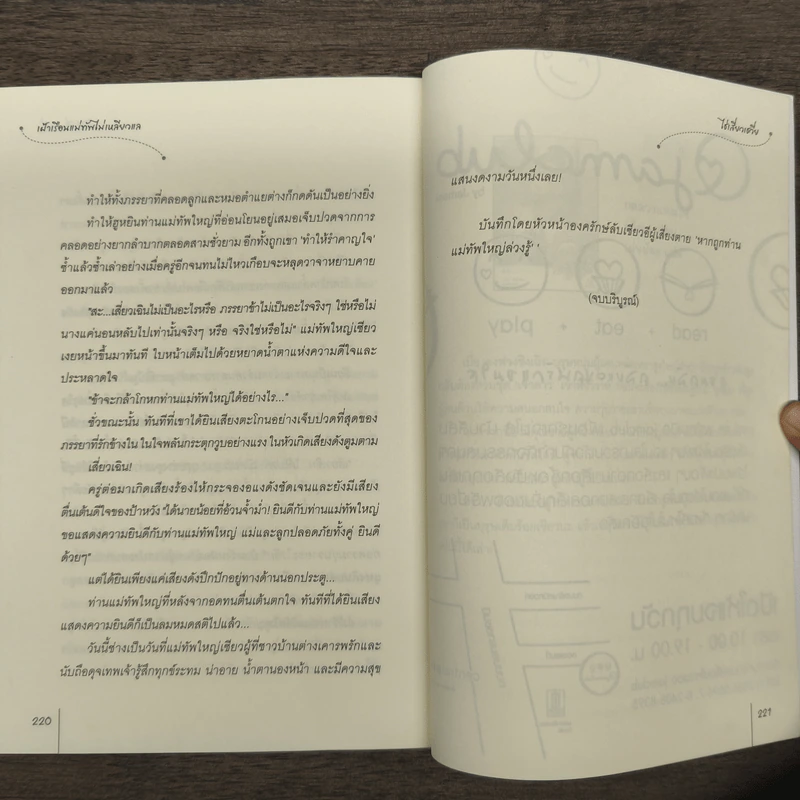 เฝ้าเรือนแม่ทัพไม่เหลียวแล
ทำให้ทั้งภรรยาที่คลอดลูกและหมอตำแยต่างก็กดดันเป็นอย่างยิ่ง
ทำให้ฮูหยินท่านแม่ทัพใหญ่ที่อ่อนโยนอยู่เสมอเจ็บปวดจากการ
คลอดอย่างยากลำบากตลอดสามชั่วยาม อีกทั้งถูกเขา 'ทำให้รำคาญใจ'
ซ้ำแล้วซ้ำเล่าอย่างเมื่อครู่อีกจนทนไม่ไหวเกือบจะหลุดวาจาหยาบคาย
ออกมาแล้ว
"สะ...เสี่ยวเฉินไม่เป็นอะไรหรือ ภรรยาข้าไม่เป็นอะไรจริงๆ ใช่หรือไม่
นางแค่นอนหลับไปเท่านั้นจริงๆ หรือ จริงใช่หรือไม่" แม่ทัพใหญ่เซียว
เงยหน้าขึ้นมาทันที ใบหน้าเต็มไปด้วยหยาดน้ำตาแห่งความดีใจและ
ประหลาดใจ
"ข้าจะกล้าโกหกท่านแม่ทัพใหญ่ได้อย่างไร..."
ชั่วขณะนั้น ทันทีที่เขาได้ยินเสียงตะโกนอย่างเจ็บปวดที่สุดของ
ภรรยาที่รักข้างใน ในใจพลันกระตุกวูบอย่างแรง ในหัวเกิดเสียงดังตูมตาม
เสี่ยวเฉิน!
ครู่ต่อมาเกิดเสียงร้องให้กระจองอแงดังชัดเจนและยังมีเสียง
ตื่นเต้นดีใจของป้าหวัง "ได้นายน้อยที่อ้วนจ้ำม่ำ! ยินดีกับท่านแม่ทัพใหญ่
ขอแสดงความยินดีกับท่านแม่ทัพใหญ่ แม่และลูกปลอดภัยทั้งคู่ ยินดี
ด้วยๆ"
แต่ได้ยินเพียงแค่เสียงดังปึกปักอยู่ทางด้านนอกประตู...
ท่านแม่ทัพใหญ่ที่หลังจากอดทนตื่นเต้นตกใจ ทันทีที่ได้ยินเสียง
แสดงความยินดีก็เป็นลมหมดสติไปแล้ว...
วันนี้ช่างเป็นวันที่แม่ทัพใหญ่เซียวผู้ที่ชาวบ้านต่างเคารพรักและ
นับถือดุจเทพเจ้ารู้สึกทุกข์ระทม น่าอาย น้ำตานองหน้า และมีความสุข
220
ไช่เสี่ยวเชวี่ย
แสนงดงามวันหนึ่งเลย!
บันทึกโดยหัวหน้าองครักษ์ลับเซียวอีผู้เสี่ยงตาย 'หากถูกท่าน
แม่ทัพใหญ่ล่วงรู้' '
(จบบริบูรณ์)
221